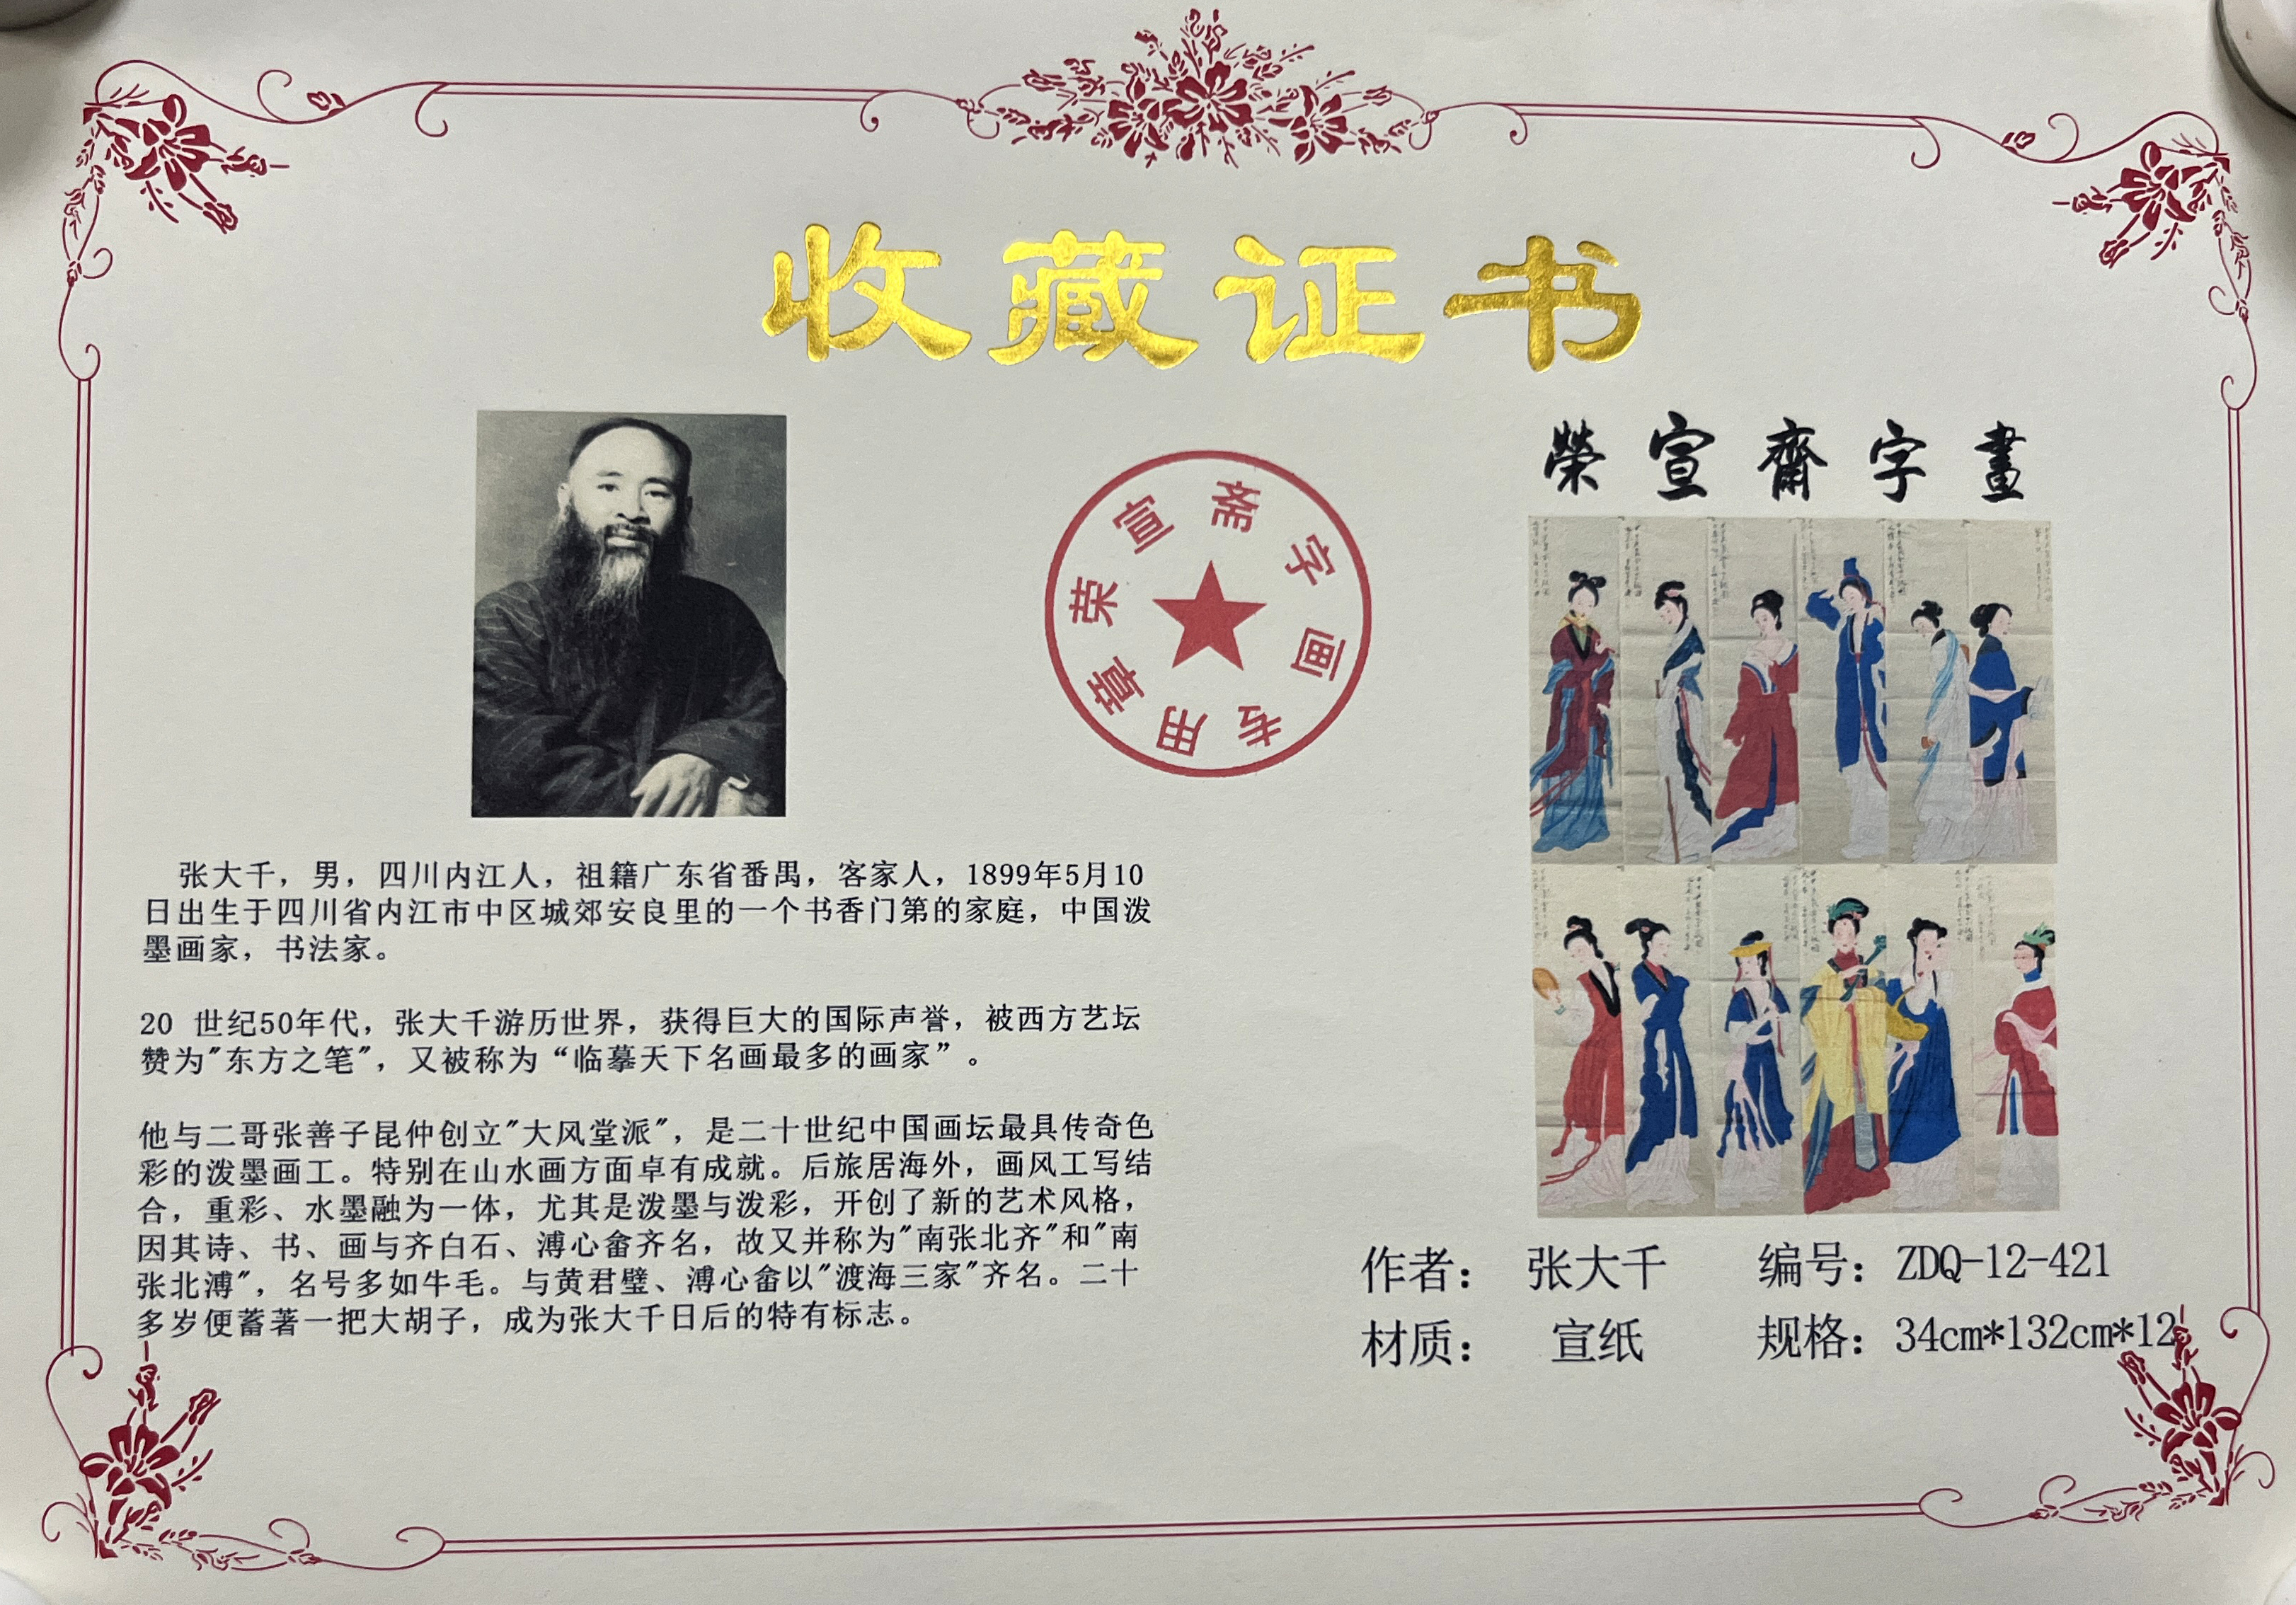 收藏证书
榮宣齋字畫
荣宣斋字画专用章
张大千，男，四川内江人，祖籍广东省番禺，客家人，1899年5月10
日出生于四川省内江市中区城郊安良里的一个书香门第的家庭，中国泼
墨画家，书法家。
20 世纪50年代，张大千游历世界，获得巨大的国际声誉，被西方艺坛
赞为"东方之笔"，又被称为“临摹天下名画最多的画家”。
他与二哥张善子昆仲创立"大风堂派"，是二十世纪中国画坛最具传奇色
彩的泼墨画工。特别在山水画方面卓有成就。后旅居海外，画风工写结
合，重彩、水墨融为一体，尤其是泼墨与泼彩，开创了新的艺术风格，
因其诗、书、画与齐白石、溥心畬齐名，故又并称为"南张北齐"和"南
张北溥"，名号多如牛毛。与黄君璧、溥心畬以"渡海三家"齐名。二十
多岁便蓄著一把大胡子，成为张大千日后的特有标志。
作者： 张大千 编号：ZDQ-12-421
材质： 宣纸 规格：34cm*132cm*12